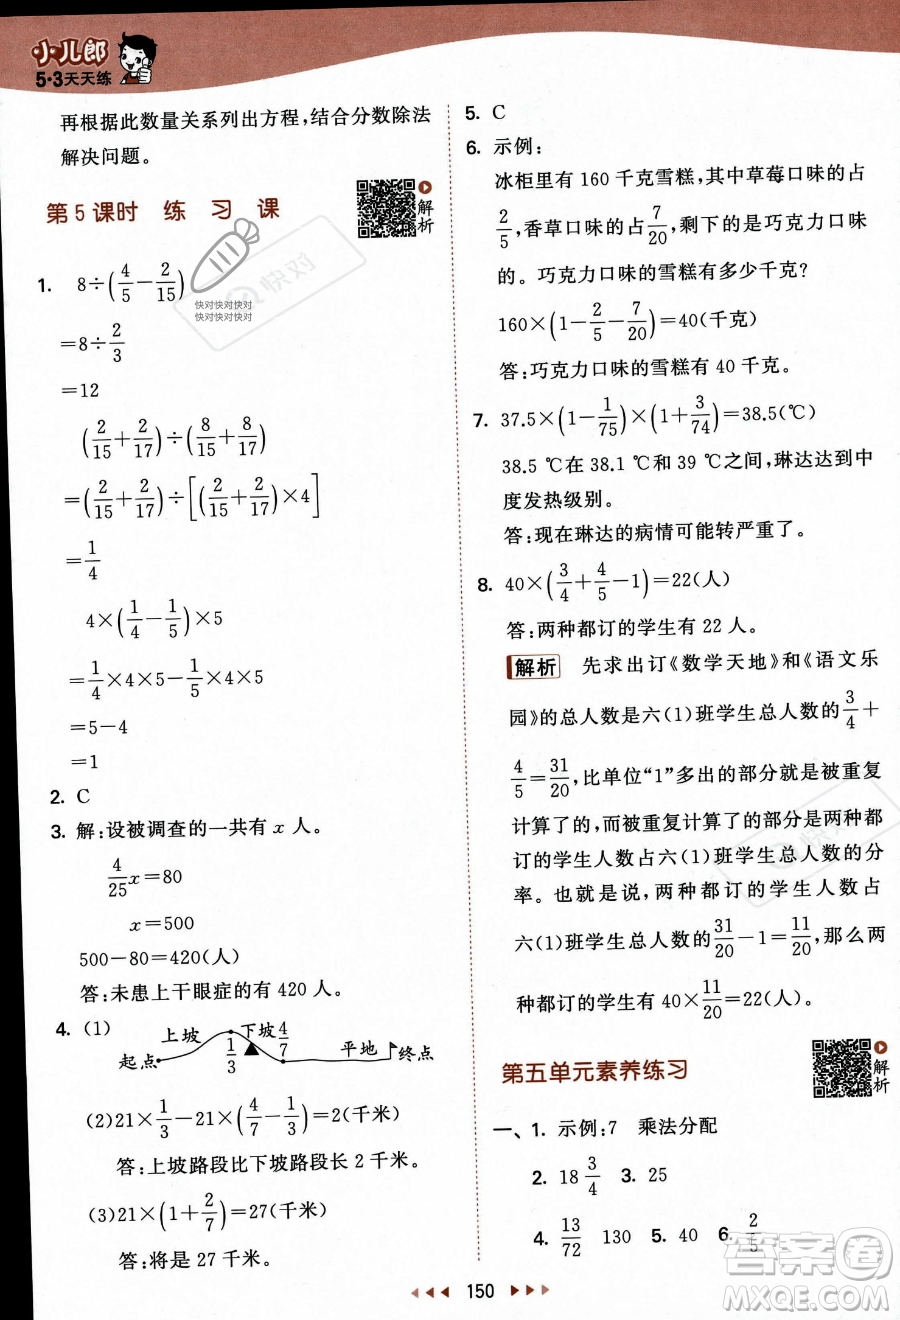 小儿郎
5·3天天练
再根据此数量关系列出方程,结合分数除法
解决问题。
第5课时 练 习 课
解析
1. 8÷(4/5−2/15)
=8÷2/3
=12
(2/15+2/17)÷(8/15+8/17)
=(2/15+2/17)÷[(2/15+2/17)×4]
=1/4
4×(1/4−1/5)×5
=1/4×4×5−1/5×4×5
=5−4
=1
2. C
3. 解:设被调查的一共有 x 人。
4/25x=80
x=500
500−80=420(人)
答:未患上干眼症的有 420 人。
4. (1)
上坡 下坡 4/7
起点 1/3 平地 终点
(2)21×1/3−21×(4/7−1/3)=2(千米)
答:上坡路段比下坡路段长 2 千米。
(3)21×(1+2/7)=27(千米)
答:将是 27 千米。
5. C
6. 示例:
冰柜里有 160 千克雪糕,其中草莓口味的占
2/5,香草口味的占7/20,剩下的是巧克力口味
的。巧克力口味的雪糕有多少千克?
160×(1−2/5−7/20)=40(千克)
答:巧克力口味的雪糕有 40 千克。
7. 37.5×(1−1/75)×(1+3/74)=38.5(℃)
38.5 ℃在 38.1 ℃和 39 ℃之间,琳达达到中
度发热级别。
答:现在琳达的病情可能转严重了。
8. 40×(3/4+4/5−1)=22(人)
答:两种都订的学生有 22 人。
解析 先求出订《数学天地》和《语文乐
园》的总人数是六(1)班学生总人数的3/4+
4/5=31/20,比单位“1”多出的部分就是被重复
计算了的,而被重复计算了的部分是两种都
订的学生人数占六(1)班学生总人数的分
率。也就是说,两种都订的学生人数占
六(1)班学生总人数的31/20−1=11/20,那么两
种都订的学生有 40×11/20=22(人)。
第五单元素养练习
解析
一、1. 示例:7 乘法分配
2. 18 3/4 3. 25
4. 13/72 130 5. 40 6. 2/5
150
快对快对快对快对
快对快对快对快对
快对
快对
答案圈
MXQE.COM